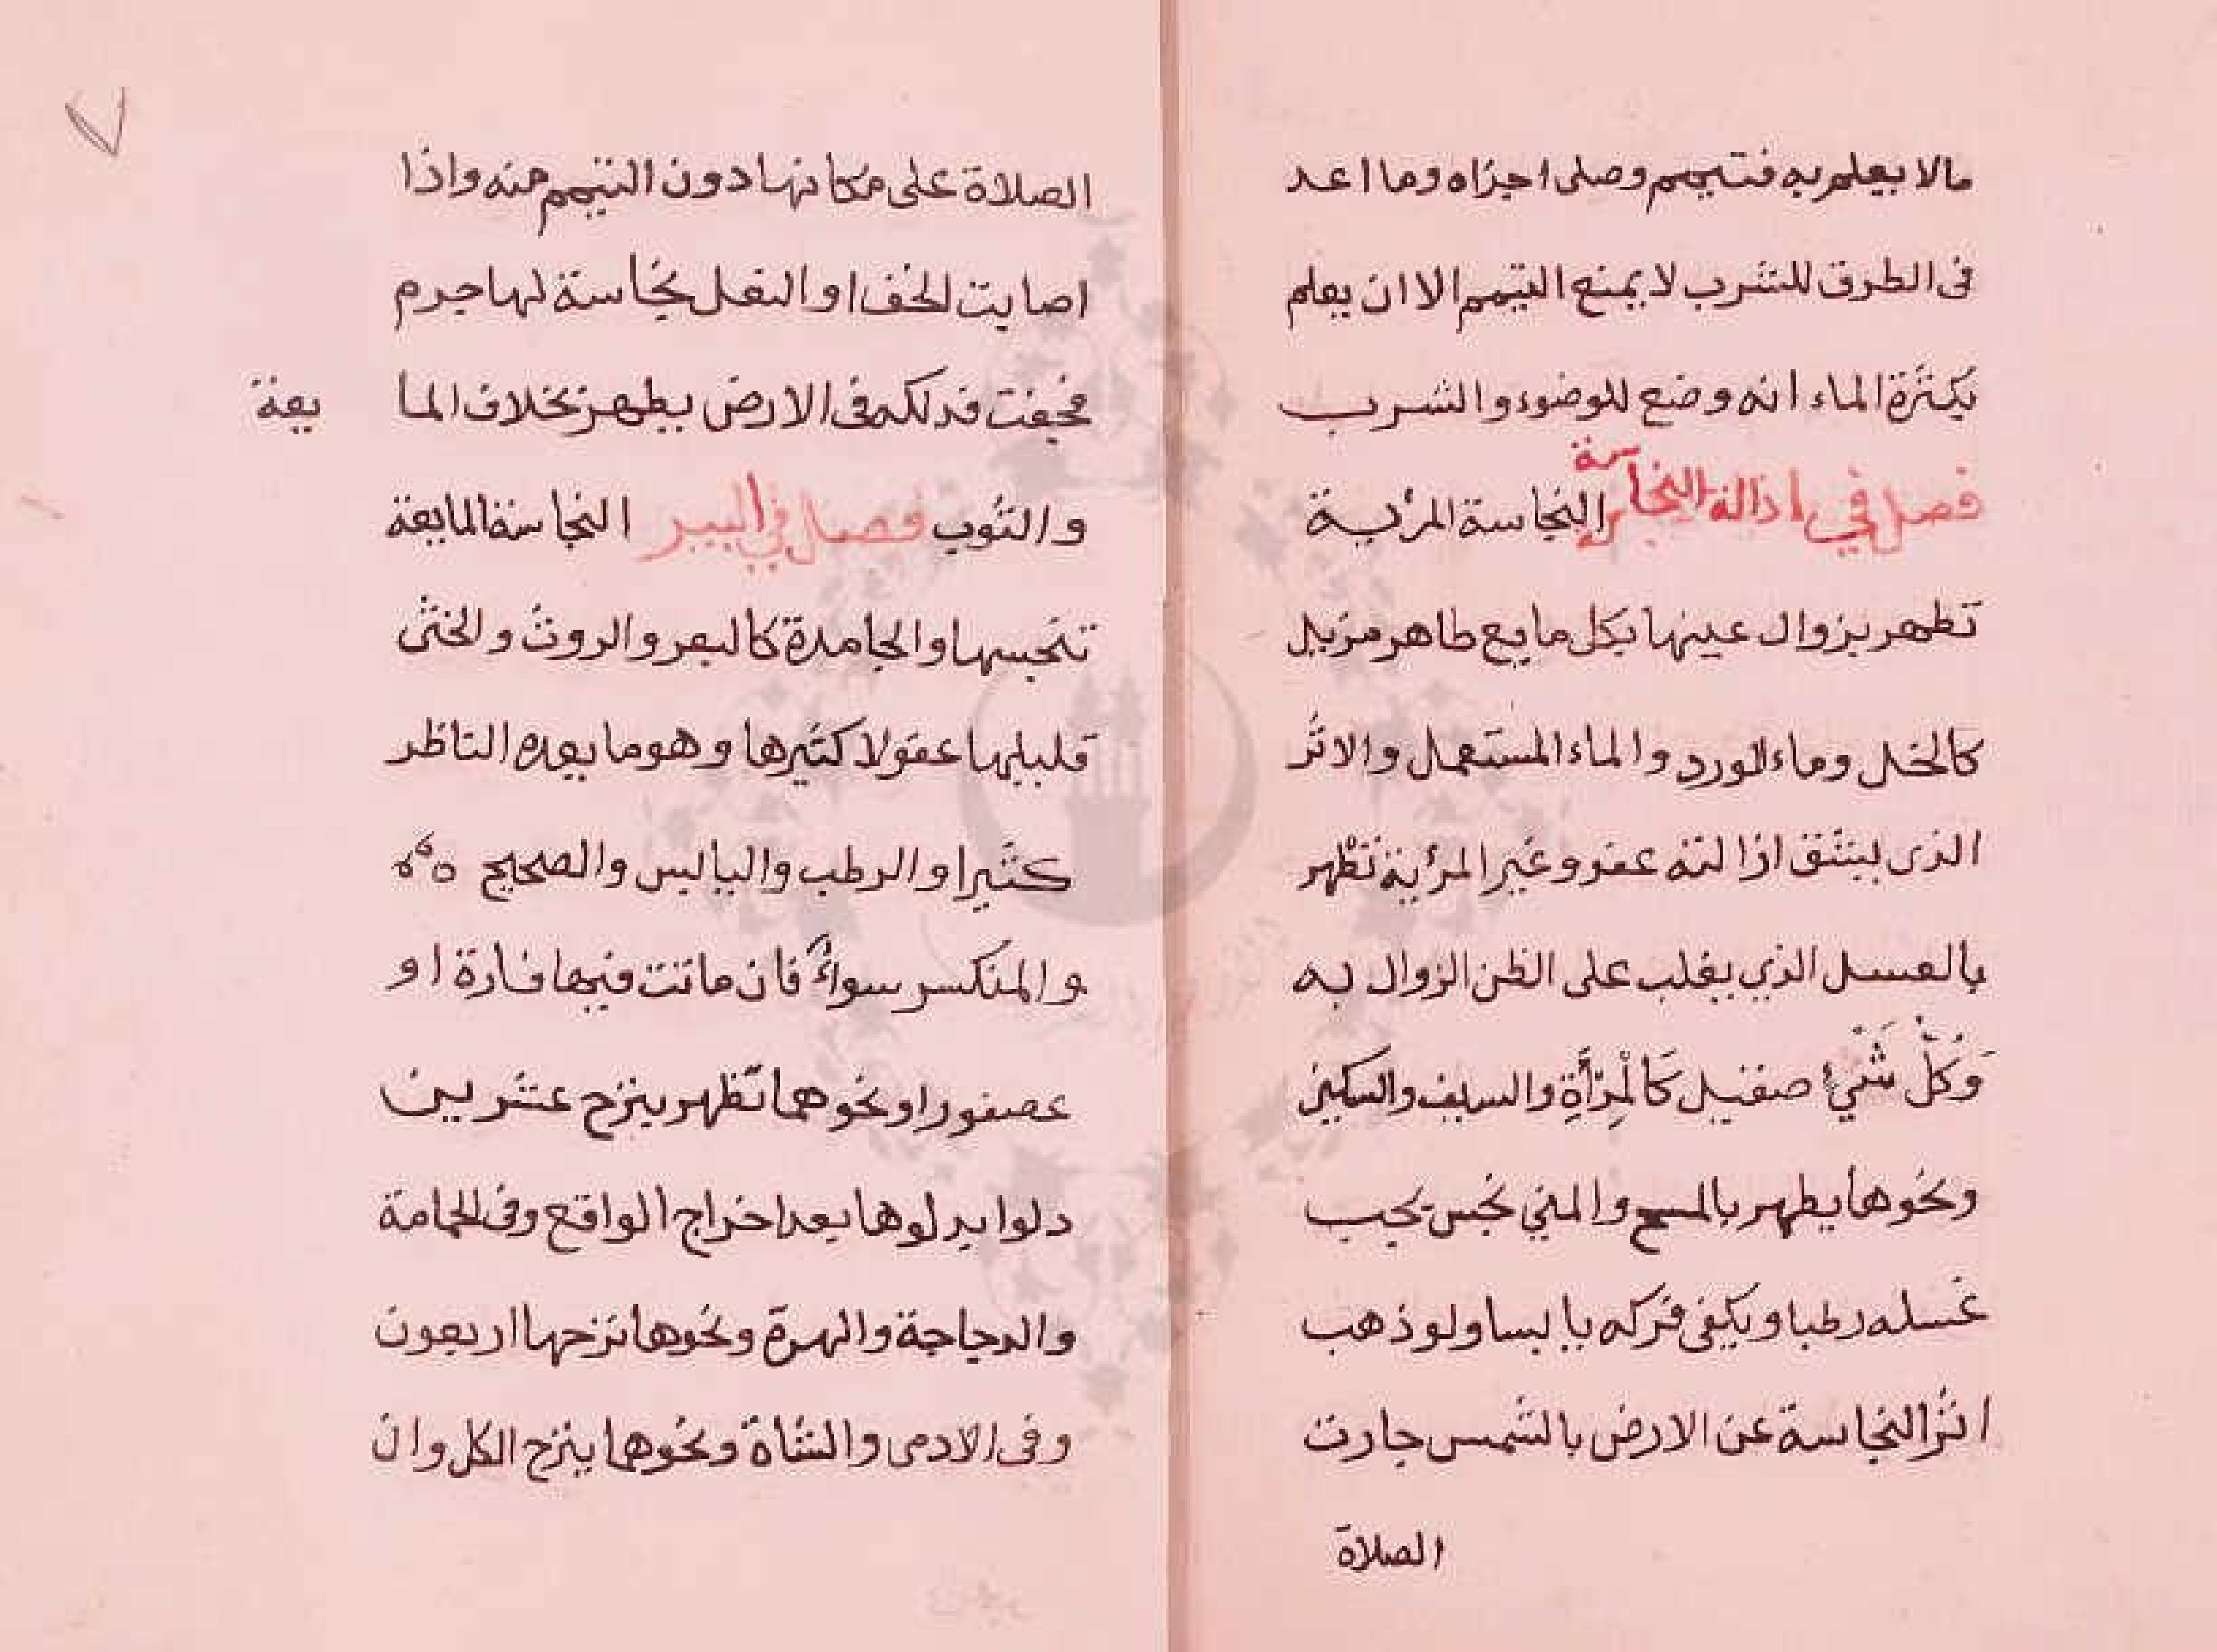 مالا يعلم به فتيمم وصلى اجزاه وما اعد
فى الطرق للشرب لا يمنع التيمم الا ان يعلم
بكثرة الماء انه وضع للوضوء والشرب
فصل في اذالة النجاسة النجاسة المرئية
تطهر بزوال عينها بكل مايع طاهر مزيل
كالخل وماء الورد والماء المستعمل والاثر
الذى يشق ازالته عفو وغير المرئية تطهر
بالغسل الذي يغلب على الظن الزوال به
وَكُلُّ شَيْءٍ صقيل كَالْمِرْأَةِ والسيف والسكين
ونحوها يطهر بالمسح والمني نجس يجب
غسله رطبا ويكفى فركه يابسا ولو ذهب
اثر النجاسة عن الارض بالشمس جازت
الصلاة
٧
الصلاة على مكانها دون التيمم منه واذا
اصابت الخف او النعل نجاسة لها جرم
فجفت فدلكه فى الارض يطهر بخلاف الما يعة
والثوب فصل في البير النجاسة المايعة
تنجسها والجامدة كالبعر والروث والخثى
قليلها عفو لا كثيرها وهو ما يعده الناظر
كثيرا والرطب واليابس والصحيح
والمنكسر سواءٌ فان ماتت فيها فارة او
عصفور او نحوهما تطهر بنزح عشرين
دلوا بدلوها بعد اخراج الواقع وفى الحمامة
والدجاجة والهرة ونحوها نزحها اربعون
وفى الآدمى والشاة ونحوهما ينزح الكل وان